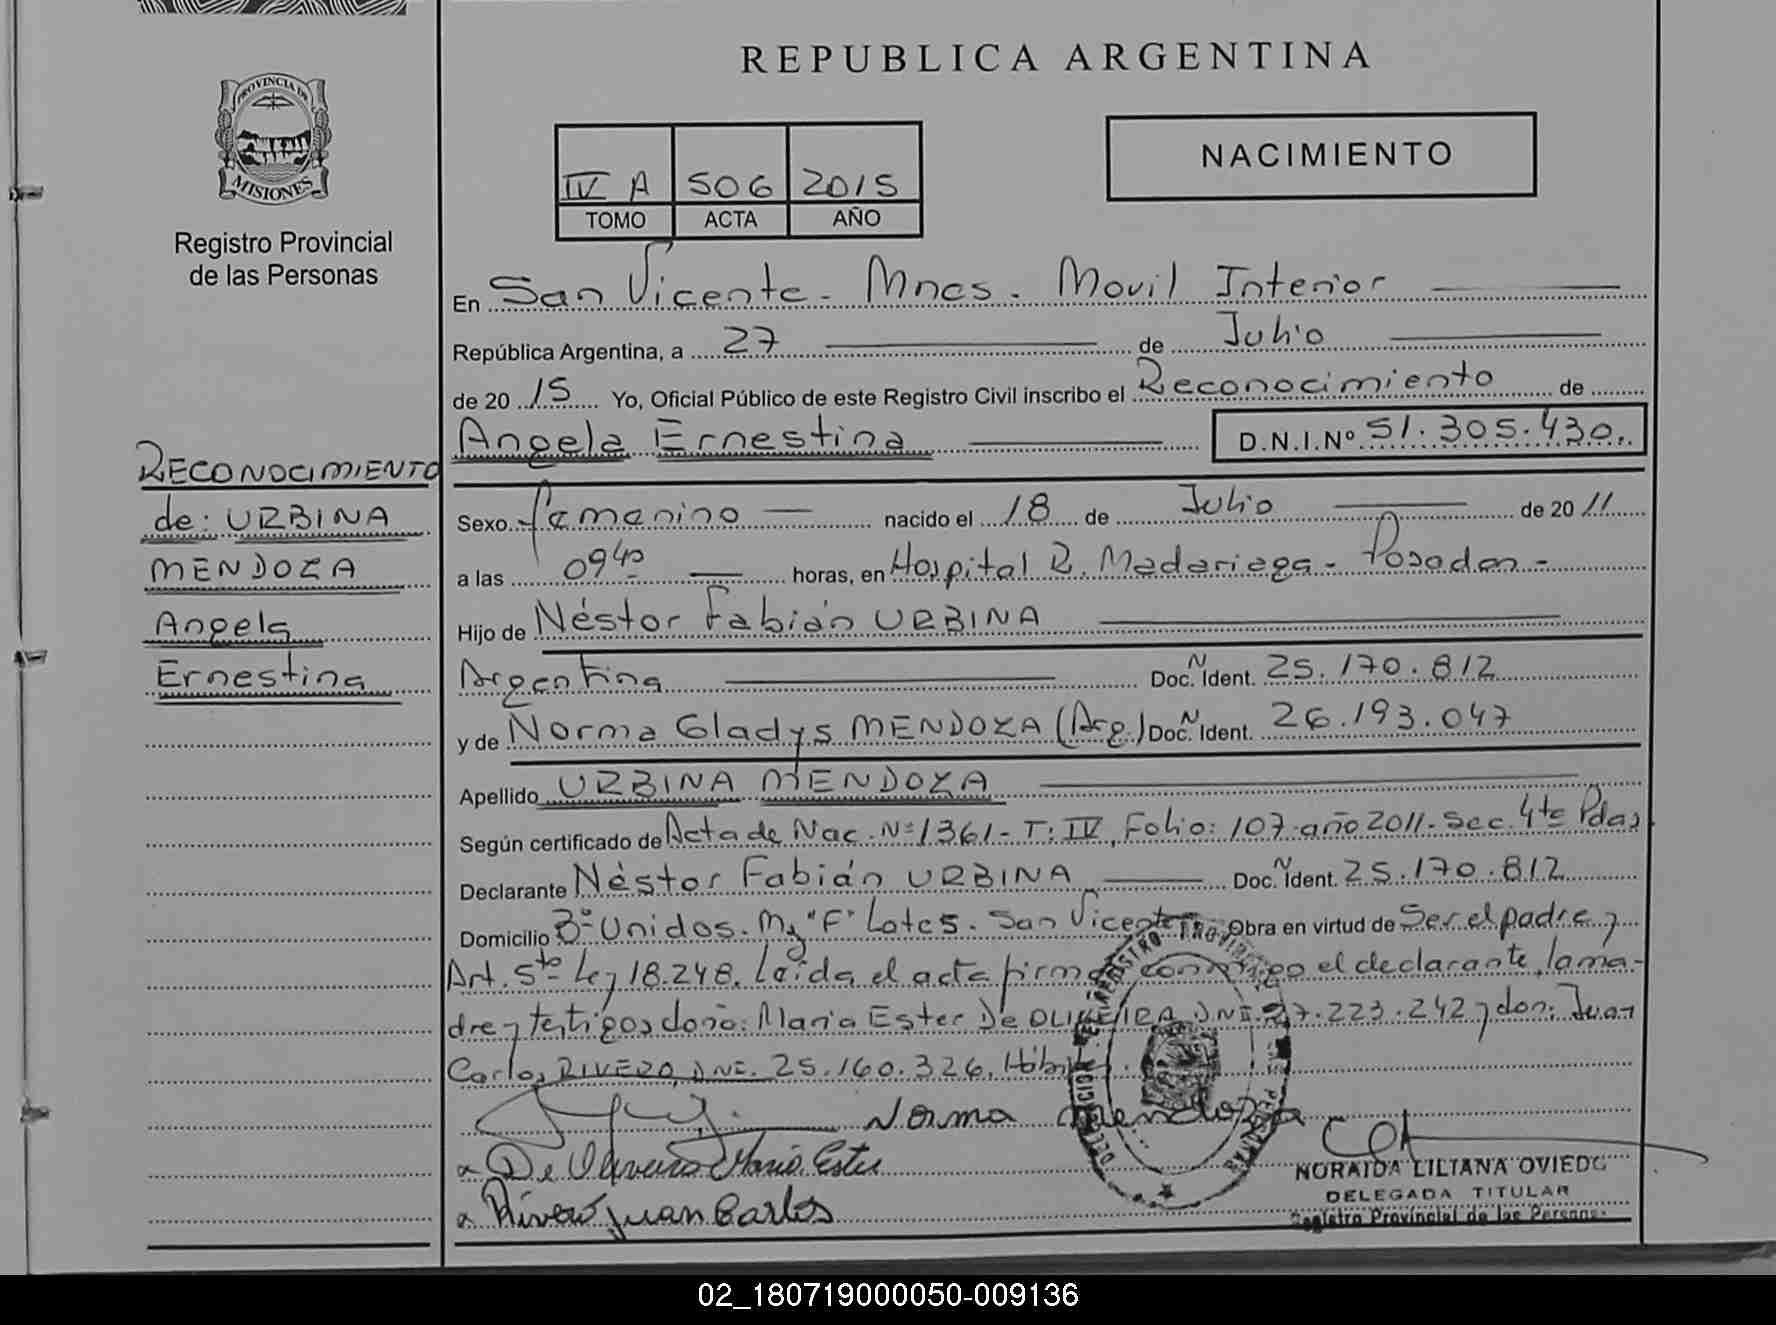 REPUBLICA ARGENTINA
PROVINCIA DE
MISIONES
Registro Provincial
de las Personas
IV A 506 2015
TOMO ACTA AÑO
NACIMIENTO
En San Vicente - Mnes. Movil Interior
República Argentina, a 27 de Julio
de 20 15 Yo, Oficial Público de este Registro Civil inscribo el Reconocimiento de
Angela Ernestina D.N.I.Nº 51.305.430.
RECONOCIMIENTO
de: URBINA
MENDOZA
Angela
Ernestina
Sexo femenino nacido el 18 de Julio de 20 11
a las 09 40 horas, en Hospital R. Madariaga - Posadas -
Hijo de Néstor Fabián URBINA
Argentina Doc. N Ident. 25.170.812
y de Norma Gladys MENDOZA (Arg.) Doc. N Ident. 26.193.047
Apellido URBINA MENDOZA
Según certificado de Acta de Nac. Nº 1361 - T: IV, Folio: 107 - año 2011 - Sec. 4ta Pdas
Declarante Néstor Fabián URBINA Doc. N Ident. 25.170.812
Domicilio Bº Unidos. Mz "F" Lote 5. San Vicente Obra en virtud de Ser el padre y
Art. 5to Ley 18.248. Leída el acta firma conmigo el declarante, la ma-
dre y testigos doña: Maria Ester De OLIVEIRA DNI. 27.223.242 y don: Juan
Carlos RIVERO, DNI. 25.160.326, Hábiles.
Norma Mendoza
a De Oliveira Maria Ester
a Rivero Juan Carlos
NORAIDA LILIANA OVIEDO
DELEGADA TITULAR
Registro Provincial de las Personas
02_180719000050-009136